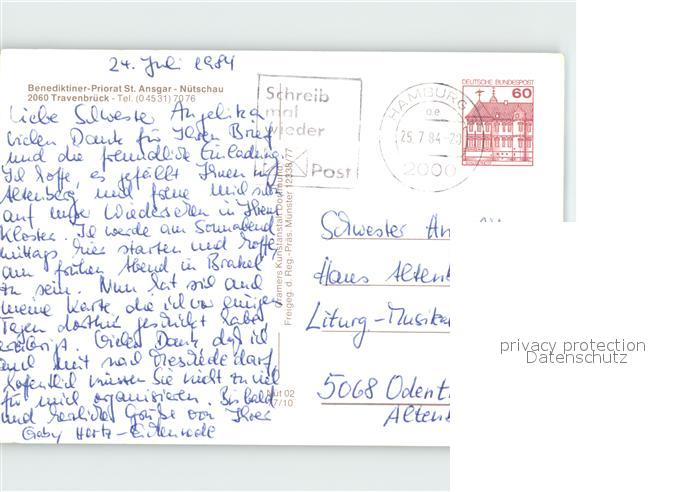 24. Juli 1984
Benediktiner-Priorat St. Ansgar - Nütschau
2060 Travenbrück - Tel. (04531) 7076
Liebe Schwester Angelika
vielen Dank für Ihren Brief
und die freundliche Einladung
Ich hoffe, es gefällt Ihnen in
Altenberg und freue mich schon
auf unser Wiedersehen in Ihrem
Kloster. Ich werde am Sonnabend
mittags hier starten und hoffe
am frühen Abend in Brakel
zu sein. Nun hat sich auch
meine Karte, die ich vor einigen
Tagen dorthin geschickt habe,
Vielen Dank, daß ich
und mit nach darf
Hoffentlich müssen Sie nicht zu viel
für mich organisieren. Bis bald
und herzliche Grüße von Ihrer
Gaby
Schreib
mal
wieder
Post
HAMBURG
25.7.84-20
2000
DEUTSCHE BUNDESPOST
60
Cramers Kunstanstalt Dortmund
Freigeg. d. Reg.-Präs. Münster 12338/77
Nüt 02
7/10
Schwester An
Haus Altenb
Liturg.-Musikw
5068 Odent
Altenb
privacy protection
Datenschutz